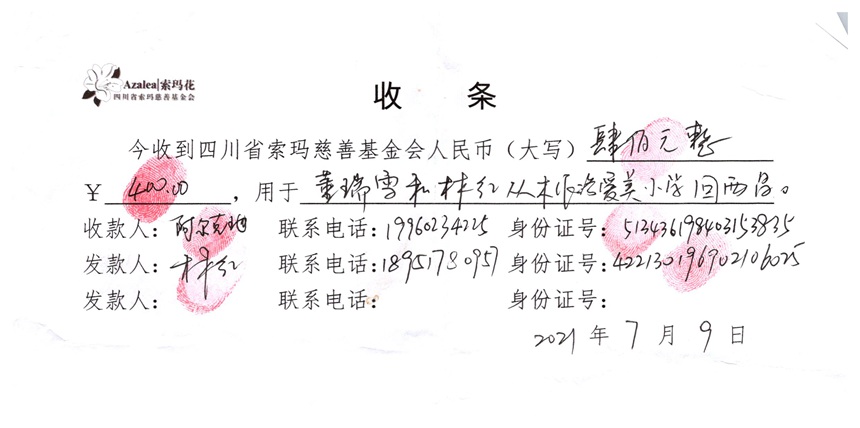 Azalea|索玛花
四川省索玛慈善基金会
收 条
今收到四川省索玛慈善基金会人民币（大写）肆佰元整
¥ 400.00 ，用于 董瑞雪和林红从木 爱美小学回西昌。
收款人：阿尔克 联系电话：19960234225 身份证号：513436198403153835
发款人：林红 联系电话：18951780957 身份证号：422130196902106025
发款人： 联系电话： 身份证号：
2021 年 7 月 9 日